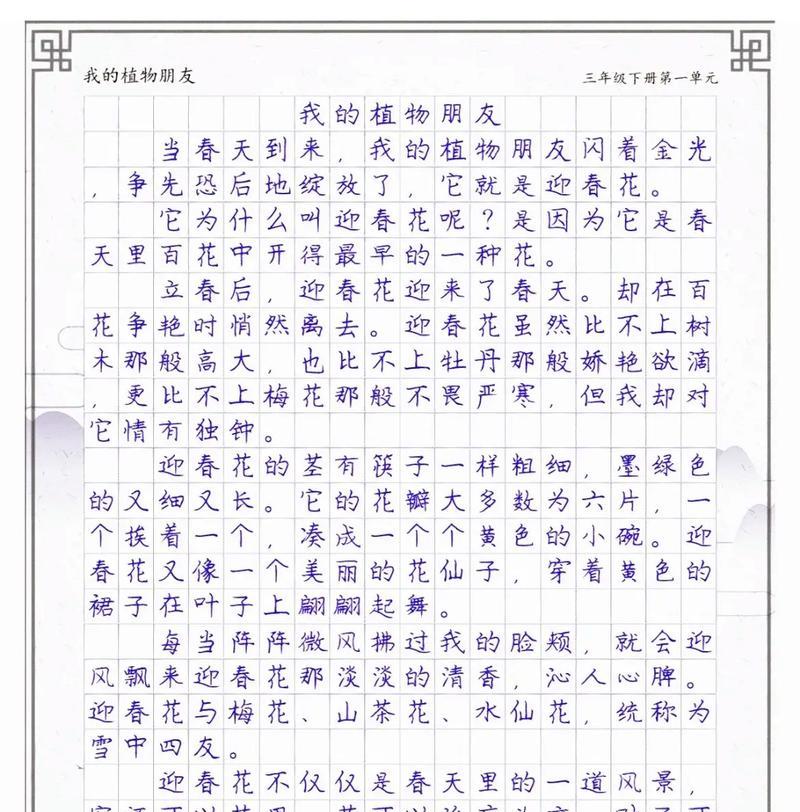 我的植物朋友
三年级下册第一单元
我的植物朋友
当春天到来，我的植物朋友闪着金光
，争先恐后地绽放了，它就是迎春花。
它为什么叫迎春花呢？是因为它是春
天里百花中开得最早的一种花。
立春后，迎春花迎来了春天。却在百
花争艳时悄然离去。迎春花虽然比不上树
木那般高大，也比不上牡丹那般娇艳欲滴
，更比不上梅花那般不畏严寒，但我却对
它情有独钟。
迎春花的茎有筷子一样粗细，墨绿色
的又细又长。它的花瓣大多数为六片，一
个挨着一个，凑成一个个黄色的小碗。迎
春花又像一个美丽的花仙子，穿着黄色的
裙子在叶子上翩翩起舞。
每当阵阵微风拂过我的脸颊，就会迎
风飘来迎春花那淡淡的清香，沁人心脾。
迎春花与梅花、山茶花、水仙花，统称为
雪中四友。
迎春花不仅仅是春天里的一道风景，